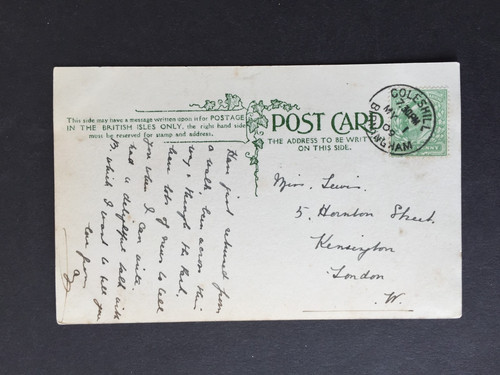 This side may have a message written upon it for POSTAGE
IN THE BRITISH ISLES ONLY, the right hand side
must be reserved for stamp and address.
POST CARD
THE ADDRESS TO BE WRIT
ON THIS SIDE.
COLESHILL
7.30PM
MY 1
BIRMINGHAM
Miss. Lewis.
5. Hornton Street.
Kensington
London.
W.
Have just returned from
a walk been across this
way & through the Park.
have lots of news to tell
you when I can write.
had a delightful talk with
B which I want to tell you
love from